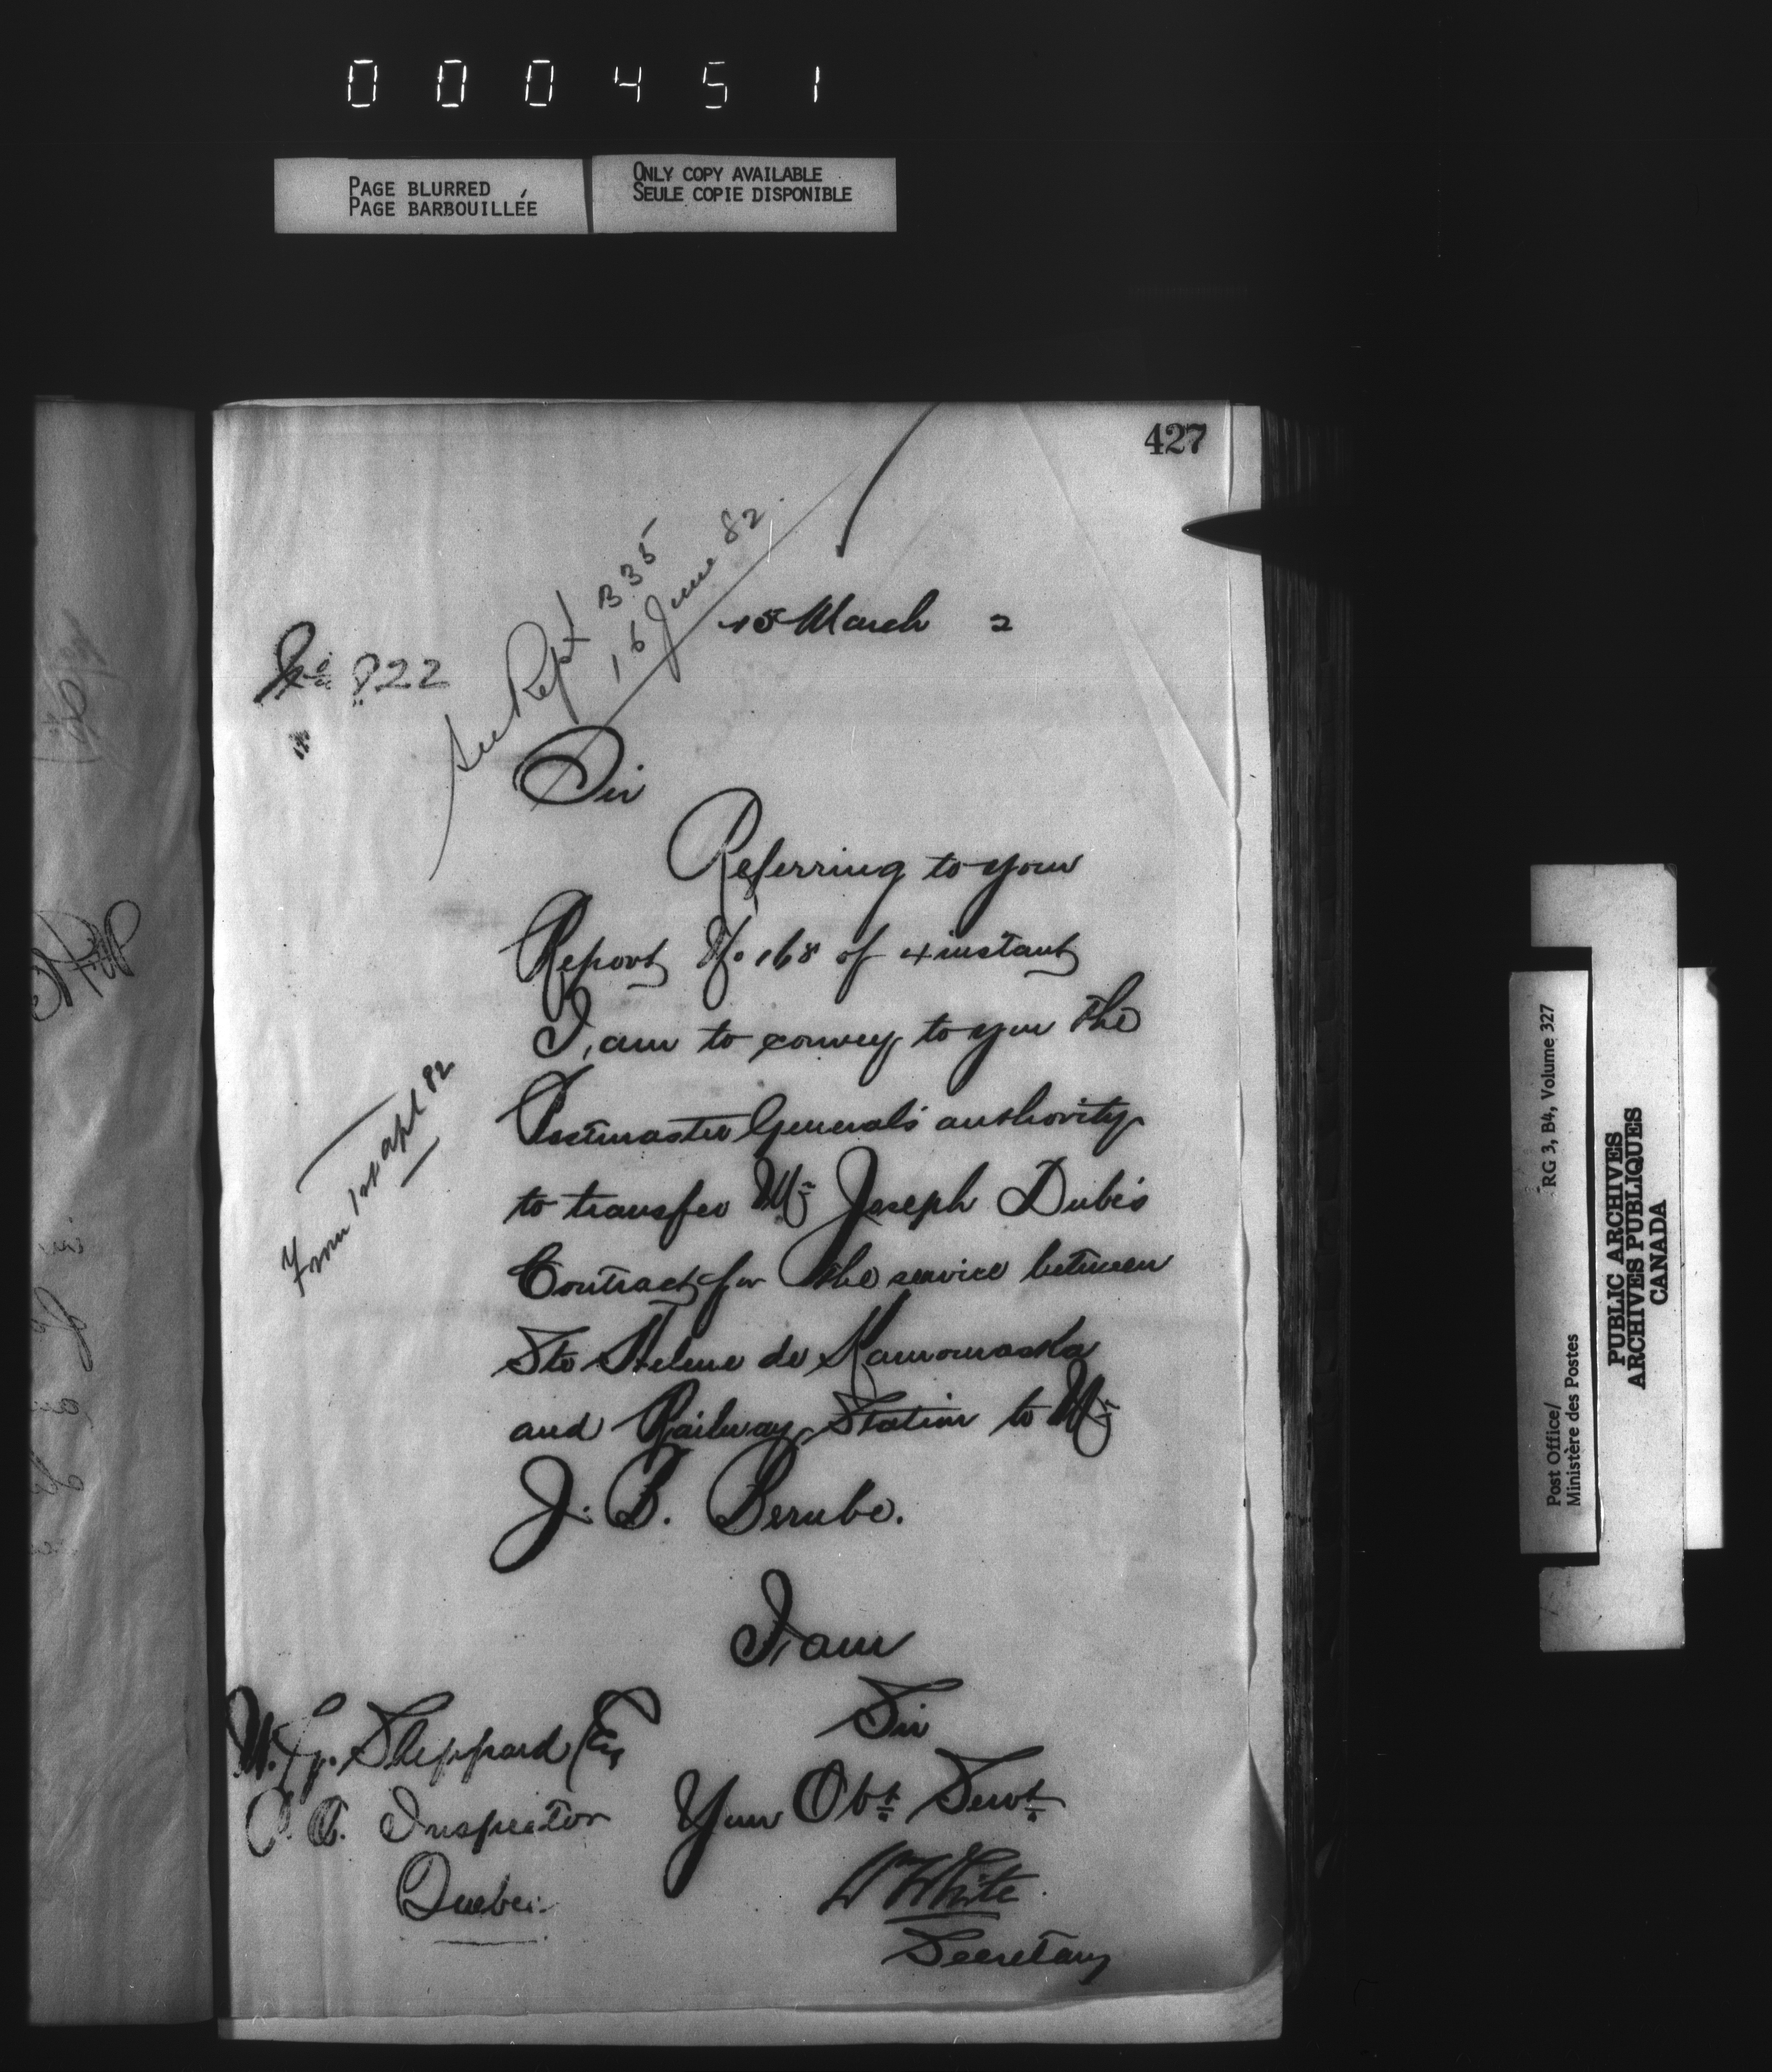 000451
PAGE BLURRED
PAGE BARBOUILLÉE
ONLY COPY AVAILABLE
SEULE COPIE DISPONIBLE
427
See Rept B 35
16 June 82
15 March 2
No 822
Sir
Referring to your
Report No 168 of 4 instant
I am to convey to you the
Postmaster General's authority
to transfer Mr Joseph Dubé's
Contract for the service between
Ste Helene de Kamouraska
and Railway Station to Mr
J. B. Berube.
From 1st apl 82
I am
Sir
Your Obt Servt
W White
Secretary
W. G. Sheppard Esq
P. O. Inspector
Quebec
Post Office/
Ministère des Postes
RG 3, B4, Volume 327
PUBLIC ARCHIVES
ARCHIVES PUBLIQUES
CANADA